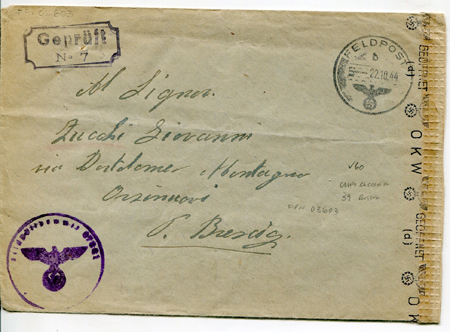 Geprüft
No 7
FELDPOST
b
22.10.44
Al Signor.
Zucchi Giovanni
via Bortolomeo Montagna
Orzinuovi
P. Brescia.
V60
39
03603
(d)
GEÖFFNET
OKW
GEÖFFNET
(d)
OKW